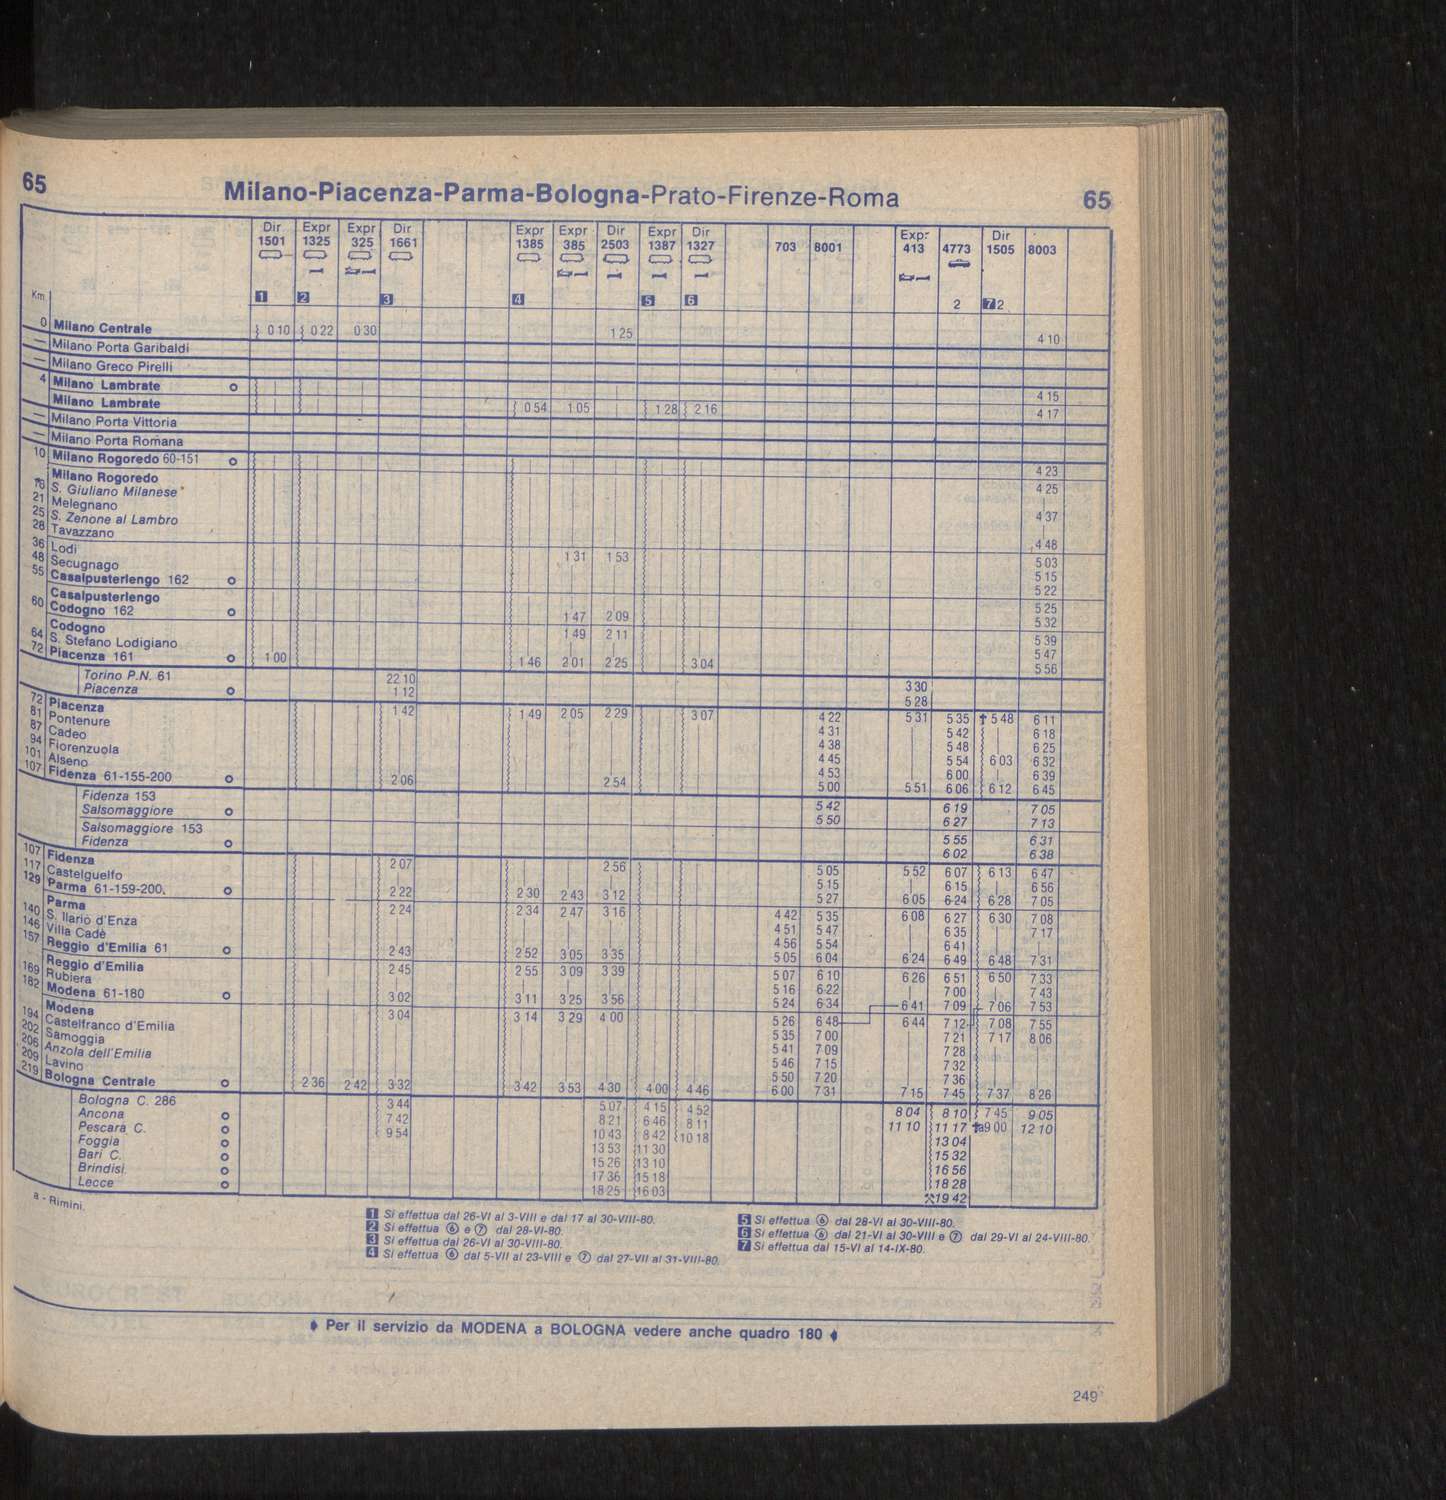 65 Milano-Piacenza-Parma-Bologna-Prato-Firenze-Roma 65
Dir Expr Expr Dir Expr Expr Dir Expr Dir Expr Dir
1501 1325 325 1661 1385 385 2503 1387 1327 703 8001 413 4773 1505 8003
1 2 3 4 5 6 2 7 2
Km
0 Milano Centrale 0 10 0 22 0 30 1 25 4 10
— Milano Porta Garibaldi
— Milano Greco Pirelli
4 Milano Lambrate o 4 15
Milano Lambrate 0 54 1 05 1 28 2 16 4 17
— Milano Porta Vittoria
— Milano Porta Romana
10 Milano Rogoredo 60-151 o 4 23
Milano Rogoredo 4 25
S. Giuliano Milanese
21 Melegnano 4 37
25 S. Zenone al Lambro
28 Tavazzano 4 48
36 Lodi 1 31 1 53 5 03
48 Secugnago 5 15
55 Casalpusterlengo 162 o 5 22
Casalpusterlengo 5 25
60 Codogno 162 o 1 47 2 09 5 32
Codogno 1 49 2 11 5 39
64 S. Stefano Lodigiano 5 47
72 Piacenza 161 o 1 00 1 46 2 01 2 25 3 04 5 56
Torino P.N. 61 22 10 3 30
Piacenza o 1 12 5 28
72 Piacenza 1 42 1 49 2 05 2 29 3 07 4 22 5 31 5 35 † 5 48 6 11
81 Pontenure 4 31 5 42 6 18
87 Cadeo 4 38 5 48 6 25
94 Fiorenzuola 4 45 5 54 6 03 6 32
101 Alseno 4 53 6 00 6 39
107 Fidenza 61-155-200 o 2 06 2 54 5 00 5 51 6 06 6 12 6 45
Fidenza 153 5 42 6 19 7 05
Salsomaggiore o 5 50 6 27 7 13
Salsomaggiore 153 5 55 6 31
Fidenza o 6 02 6 38
107 Fidenza 2 07 2 56 5 05 5 52 6 07 6 13 6 47
117 Castelguelfo 5 15 6 15 6 56
129 Parma 61-159-200 o 2 22 2 30 2 43 3 12 5 27 6 05 6 24 6 28 7 05
Parma 2 24 2 34 2 47 3 16 4 42 5 35 6 08 6 27 6 30 7 08
140 S. Ilario d'Enza 4 51 5 47 6 35 7 17
146 Villa Cadè 4 56 5 54 6 41
157 Reggio d'Emilia 61 o 2 43 2 52 3 05 3 35 5 05 6 04 6 24 6 49 6 48 7 31
Reggio d'Emilia 2 45 2 55 3 09 3 39 5 07 6 10 6 26 6 51 6 50 7 33
169 Rubiera 5 16 6 22 7 00 7 43
182 Modena 61-180 o 3 02 3 11 3 25 3 56 5 24 6 34 6 41 7 09 7 06 7 53
Modena 3 04 3 14 3 29 4 00 5 26 6 48 6 44 7 12 7 08 7 55
194 Castelfranco d'Emilia 5 35 7 00 7 21 7 17 8 06
202 Samoggia 5 41 7 09 7 28
206 Anzola dell'Emilia 5 46 7 15 7 32
209 Lavino 5 50 7 20 7 36
219 Bologna Centrale o 2 36 2 42 3 32 3 42 3 53 4 30 4 00 4 46 6 00 7 31 7 15 7 45 7 37 8 26
Bologna C. 286 3 44 5 07 4 15 4 52 8 04 8 10 7 45 9 05
Ancona o 7 42 8 21 6 46 8 11 11 10 11 17 †a9 00 12 10
Pescara C. o 9 54 10 43 8 42 10 18 13 04
Foggia o 13 53 11 30 15 32
Bari C. o 15 26 13 10 16 56
Brindisi o 17 36 15 18 18 28
Lecce o 18 25 16 03 ⚒19 42
a - Rimini.
1 Si effettua dal 26-VI al 3-VIII e dal 17 al 30-VIII-80.
2 Si effettua ⑥ e ⑦ dal 28-VI-80.
3 Si effettua dal 26-VI al 30-VIII-80.
4 Si effettua ⑥ dal 5-VII al 23-VIII e ⑦ dal 27-VII al 31-VIII-80.
5 Si effettua ⑥ dal 28-VI al 30-VIII-80.
6 Si effettua ⑥ dal 21-VI al 30-VIII e ⑦ dal 29-VI al 24-VIII-80.
7 Si effettua dal 15-VI al 14-IX-80.
Per il servizio da MODENA a BOLOGNA vedere anche quadro 180
249